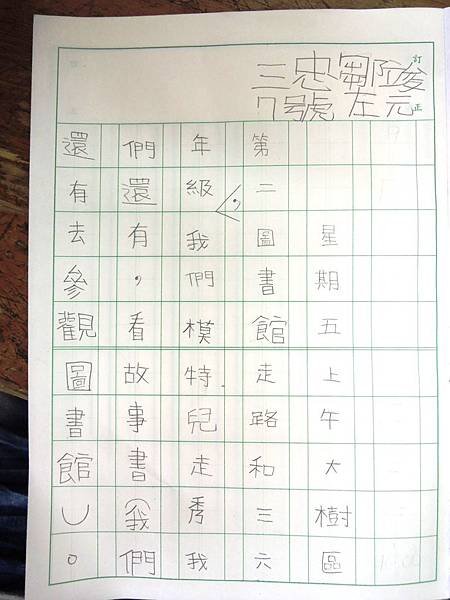 訂正
三忠鄒竣
7號 左元
星期五上午大樹區
第二圖書館走路和三六
年級，我們模特兒走秀我
們還有，看故事書（我們
還有去參觀圖書館）。